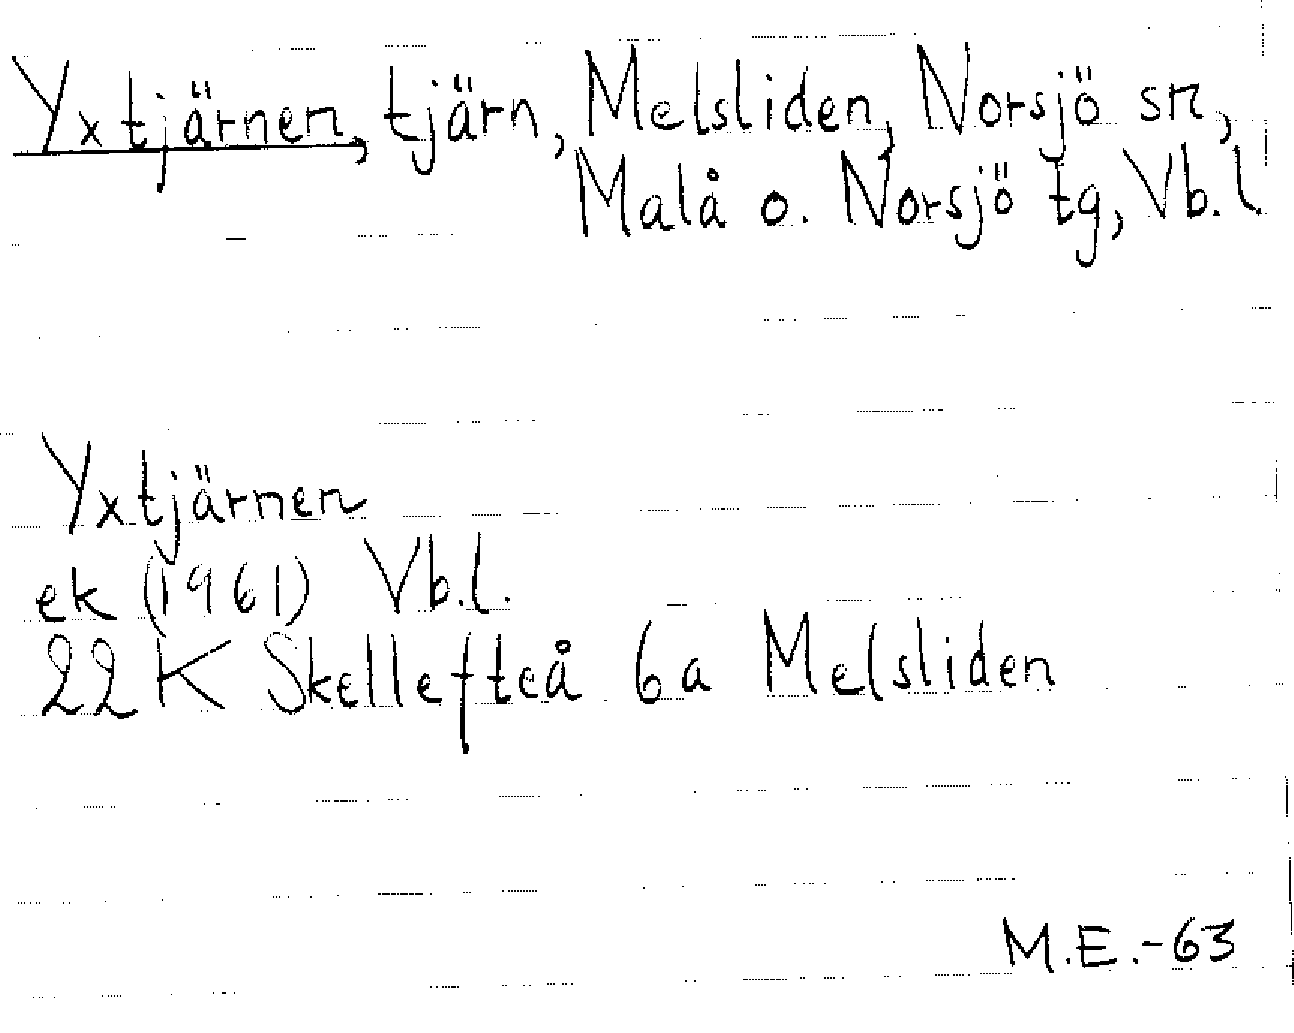 Yxtjärnen, tjärn, Melsliden, Norsjö sn,
Malå o. Norsjö tg, Vb.l
Yxtjärnen
ek (1961) Vb.l.
22 K Skellefteå 6a Melsliden
M.E.-63